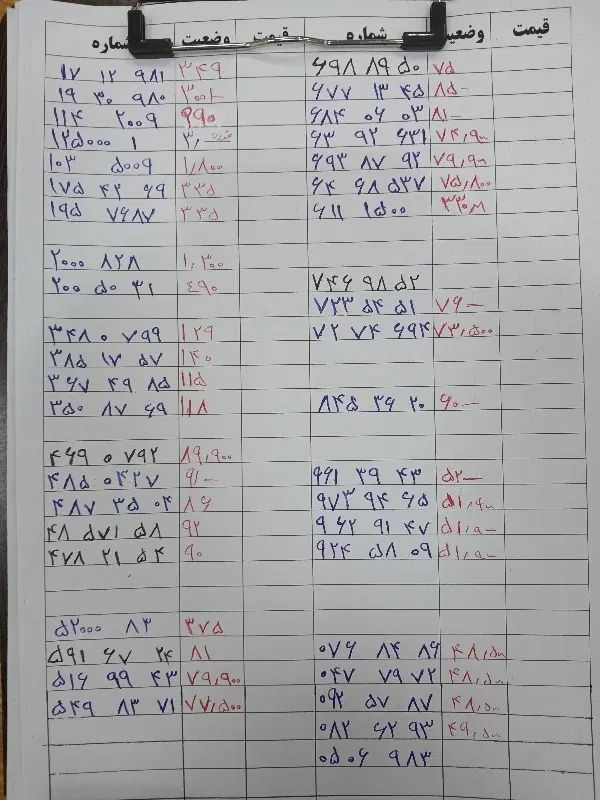 شماره وضعیت قیمت
۱۷ ۱۲ ۹۸۱ ۳۴۹
۱۹ ۳۰ ۹۸۰
۱۱۴ ۲۰۰۹ ۹۹۰
۱۲۵۰۰۰ ۱
۱۰۳ ۵۰۰۹ ۱,۸۰۰
۱۷۵ ۴۲ ۶۹ ۳۳۵
۱۹۵ ۷۶۸۷ ۳۳۵
۲۰۰۰ ۸۲۸ ۱,۳۰۰
۲۰۰ ۵۰ ۳۱ ۴۹۰
۳۴۸ ۰ ۷۹۹ ۱۲۹
۳۸۵ ۱۷ ۵۷ ۱۴۰
۳۶۷ ۴۹ ۸۵ ۱۱۵
۳۵۰ ۸۷ ۶۹ ۱۱۸
۴۶۹ ۰ ۷۹۲ ۸۹,۹۰۰
۴۸۵ ۰۴۲۷ ۹۱۰۰
۴۸۷ ۳۵ ۰۴ ۸۶
۴۸ ۵۷۱ ۵۸ ۹۲
۴۷۸ ۲۱ ۵۴ ۹۰
۵۲۰۰۰ ۸۳ ۳۷۵
۵۹۱ ۶۷ ۲۴ ۸۱
۵۱۶ ۹۹ ۴۳ ۷۹,۹۰۰
۵۴۹ ۸۳ ۷۱ ۷۷,۵۰۰
شماره وضعیت قیمت
۶۹۸ ۸۹ ۵۰ ۷۵
۶۷۷ ۱۳ ۴۵ ۸۵۰۰
۶۸۴ ۰۶ ۰۳ ۸۱۰۰
۶۳ ۹۲ ۶۳۱ ۷۴,۹۰۰
۶۹۳ ۸۷ ۹۲ ۷۹,۹۰۰
۶۴ ۶۸ ۵۳۷ ۷۵,۸۰۰
۶۱۱ ۱۵۰۰
۷۴۶ ۹۸ ۵۲
۷۲۳ ۵۴ ۵۱ ۷۶۰۰
۷۲ ۷۴ ۶۹۴ ۷۳,۵۰۰
۸۴۵ ۳۶ ۲۰ ۶۰۰۰
۹۹۱ ۳۹ ۴۳ ۵۲۰۰
۹۷۳ ۹۴ ۶۵ ۵۱,۹۰۰
۹ ۶۲ ۹۱ ۴۷ ۵۱,۹۰۰
۹۲۴ ۵۸ ۰۹ ۵۱,۹۰۰
۰۷۶ ۸۴ ۸۶ ۴۸,۵۰۰
۰۴۷ ۷۹ ۷۲ ۴۸,۵۰۰
۰۹۲ ۵۷ ۸۷ ۴۸,۵۰۰
۰۸۲ ۶۲ ۹۳ ۴۹,۵۰۰
۰۵۰۶ ۹۸۳